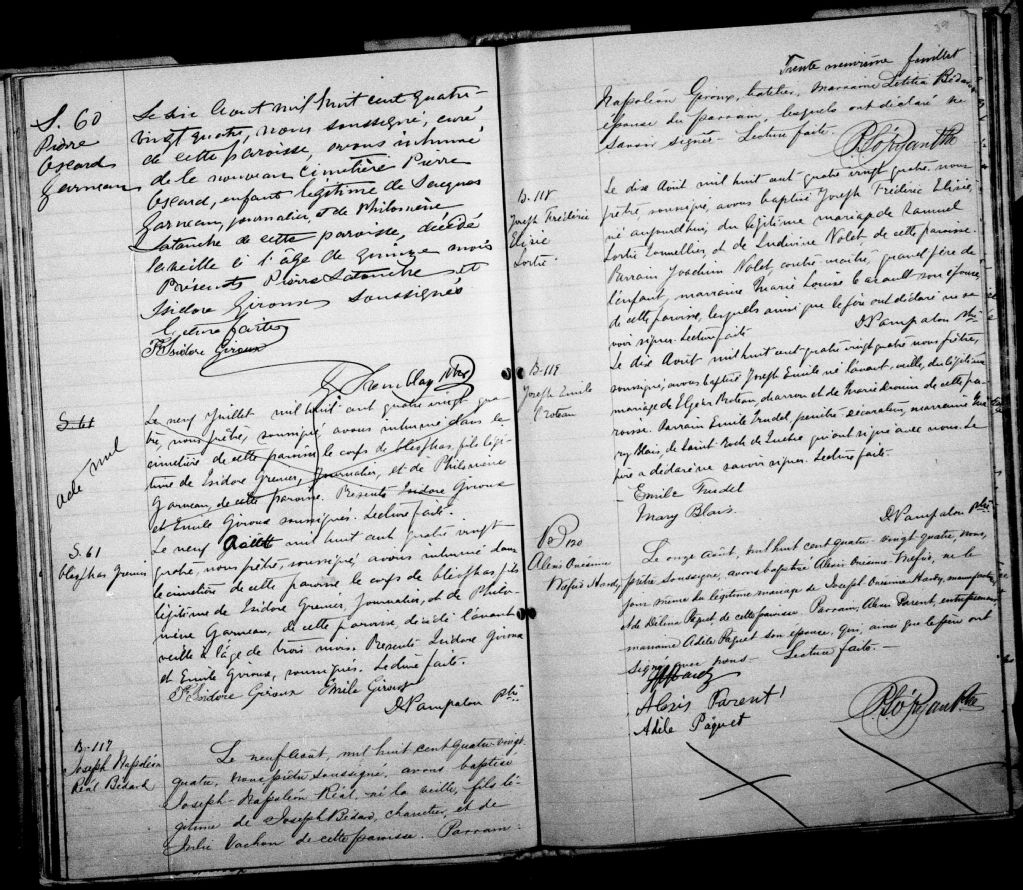 S. 60
Pierre
Oscard
Garneau
Le six Aout mil huit cent quatre-
vingt quatre, nous soussigné, curé
de cette paroisse, avons inhumé
de le nouveau cimetière Pierre
Oscard, enfant légitime de Jacques
Garneau, journalier, et de Philomène
Latouche de cette paroisse, décédé
la veille à l'age de quinze mois
Présents Pierre Latouche et
Isidore Giroux soussignés
Lecture faite
Isidore Giroux
Tremblay Ptre
S. 61
acte nul
Le neuf Juillet mil huit cent quatre vingt qua-
tre, nous prêtre, soussigné avons inhumé dans le
cimetière de cette paroisse le corps de Cléophas, fils légi-
time de Isidore Grenier, Journalier, et de Philomène
Garneau, de cette paroisse. Présents Isidore Giroux
et Emile Giroux soussignés. Lecture faite.
S. 61
Cléophas Grenier
Le neuf Août mil huit cent quatre vingt
quatre, nous prêtre, soussigné, avons inhumé dans
le cimetière de cette paroisse le corps de Cléophas, fils
légitime de Isidore Grenier, Journalier, et de Philo-
mène Garneau, de cette paroisse, décédé l'avant
veille à l'âge de trois mois. Présents Isidore Giroux
et Emile Giroux, soussignés. Lecture faite.
Isidore Giroux Émile Giroux
D. Pampalon ptre
B. 117
Joseph Napoléon
Réal Bédard
Le neuf Août, mil huit cent quatre-vingt
quatre, nous prêtre soussigné, avons baptisé
Joseph-Napoléon Réal, né la veille, fils lé-
gitime de Joseph Bédard, charretier, et de
Julie Vachon de cette paroisse. Parrain
39
Trente neuvième feuillet
Napoléon Giroux, hotelier, Marraine Létitia Bédard
épouse du parrain, lesquels ont déclaré ne
savoir signer. Lecture faite.
P. O'Ryan Ptre
B. 118
Joseph Frédéric
Elzié
Lortie
Le dix Août mil huit cent quatre vingt quatre nous
prêtre, soussigné, avons baptisé Joseph Frédéric Elzié,
né aujourd'hui, du légitime mariage de Samuel
Lortie Tonnellier, et de Ludivine Nolet, de cette paroisse.
Parrain Joachim Nolet contre-maitre, grand père de
l'enfant, marraine Marie Louise son épouse,
de cette paroisse, lesquels ainsi que le père ont déclaré ne sa-
voir signer. Lecture faite.
D. Pampalon ptre
B. 119
Joseph Emile
Proteau
Le dix Août mil huit cent quatre vingt quatre nous prêtre,
soussigné, avons baptisé Joseph Emile, né l'avant-veille, du légitime
mariage de Elzéar Proteau, charron et de Marie Drouin de cette pa-
roisse. Parrain Emile Trudel, peintre-décorateur, marraine Ma-
ry Blais, de Saint-Roch de Québec qui ont signé avec nous. Le
père a déclaré ne savoir signer. Lecture faite.
Emile Trudel
Mary Blais
D. Pampalon ptre
B 120
Alexis Onésime
Néfris Hardy
Le onze Août, mil huit cent quatre-vingt quatre, nous,
prêtre soussigné, avons baptisé Alexis Onésime Néfris, né le
jour même du légitime mariage de Joseph Onésime Hardy, manufacturier,
et de Délina Paquet de cette paroisse. Parrain, Alexis Parent, entrepreneur,
marraine Adèle Paquet son épouse, qui, ainsi que le père ont
signé avec nous. Lecture faite.
Hardy
Alexis Parent
Adèle Paquet
P. O'Ryan Ptre